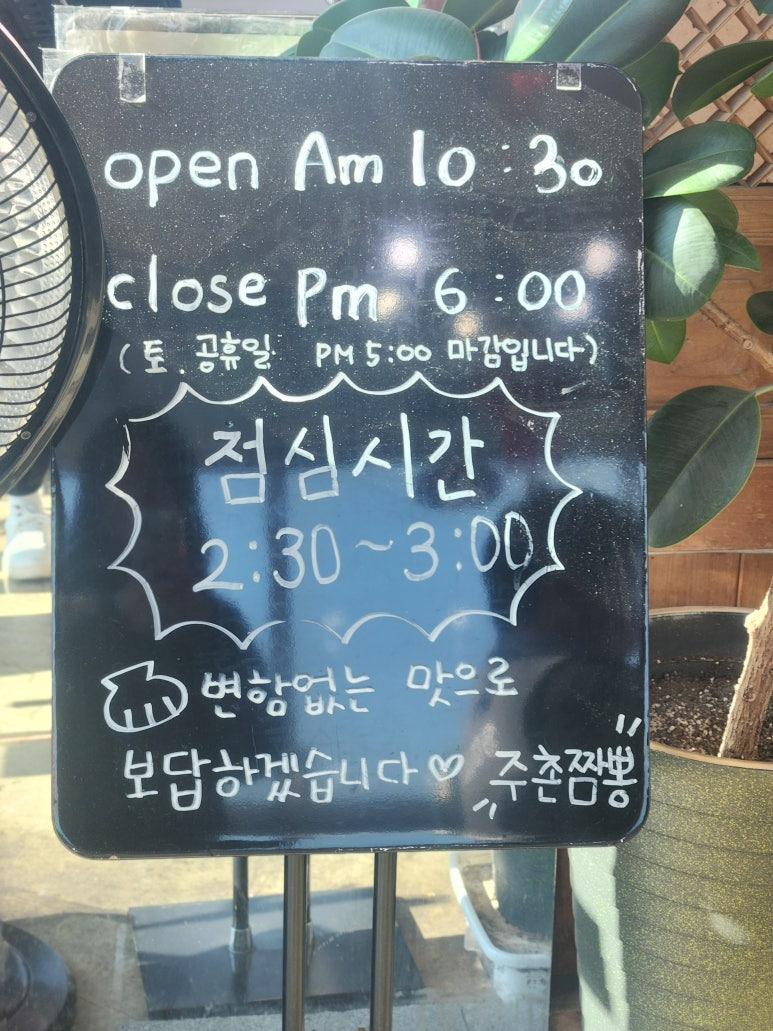 open Am 10 : 30
close Pm 6 : 00
(토. 공휴일 PM 5:00 마감입니다)
점심시간
2:30~3:00
변함없는 맛으로
보답하겠습니다♡ "주촌짬뽕"